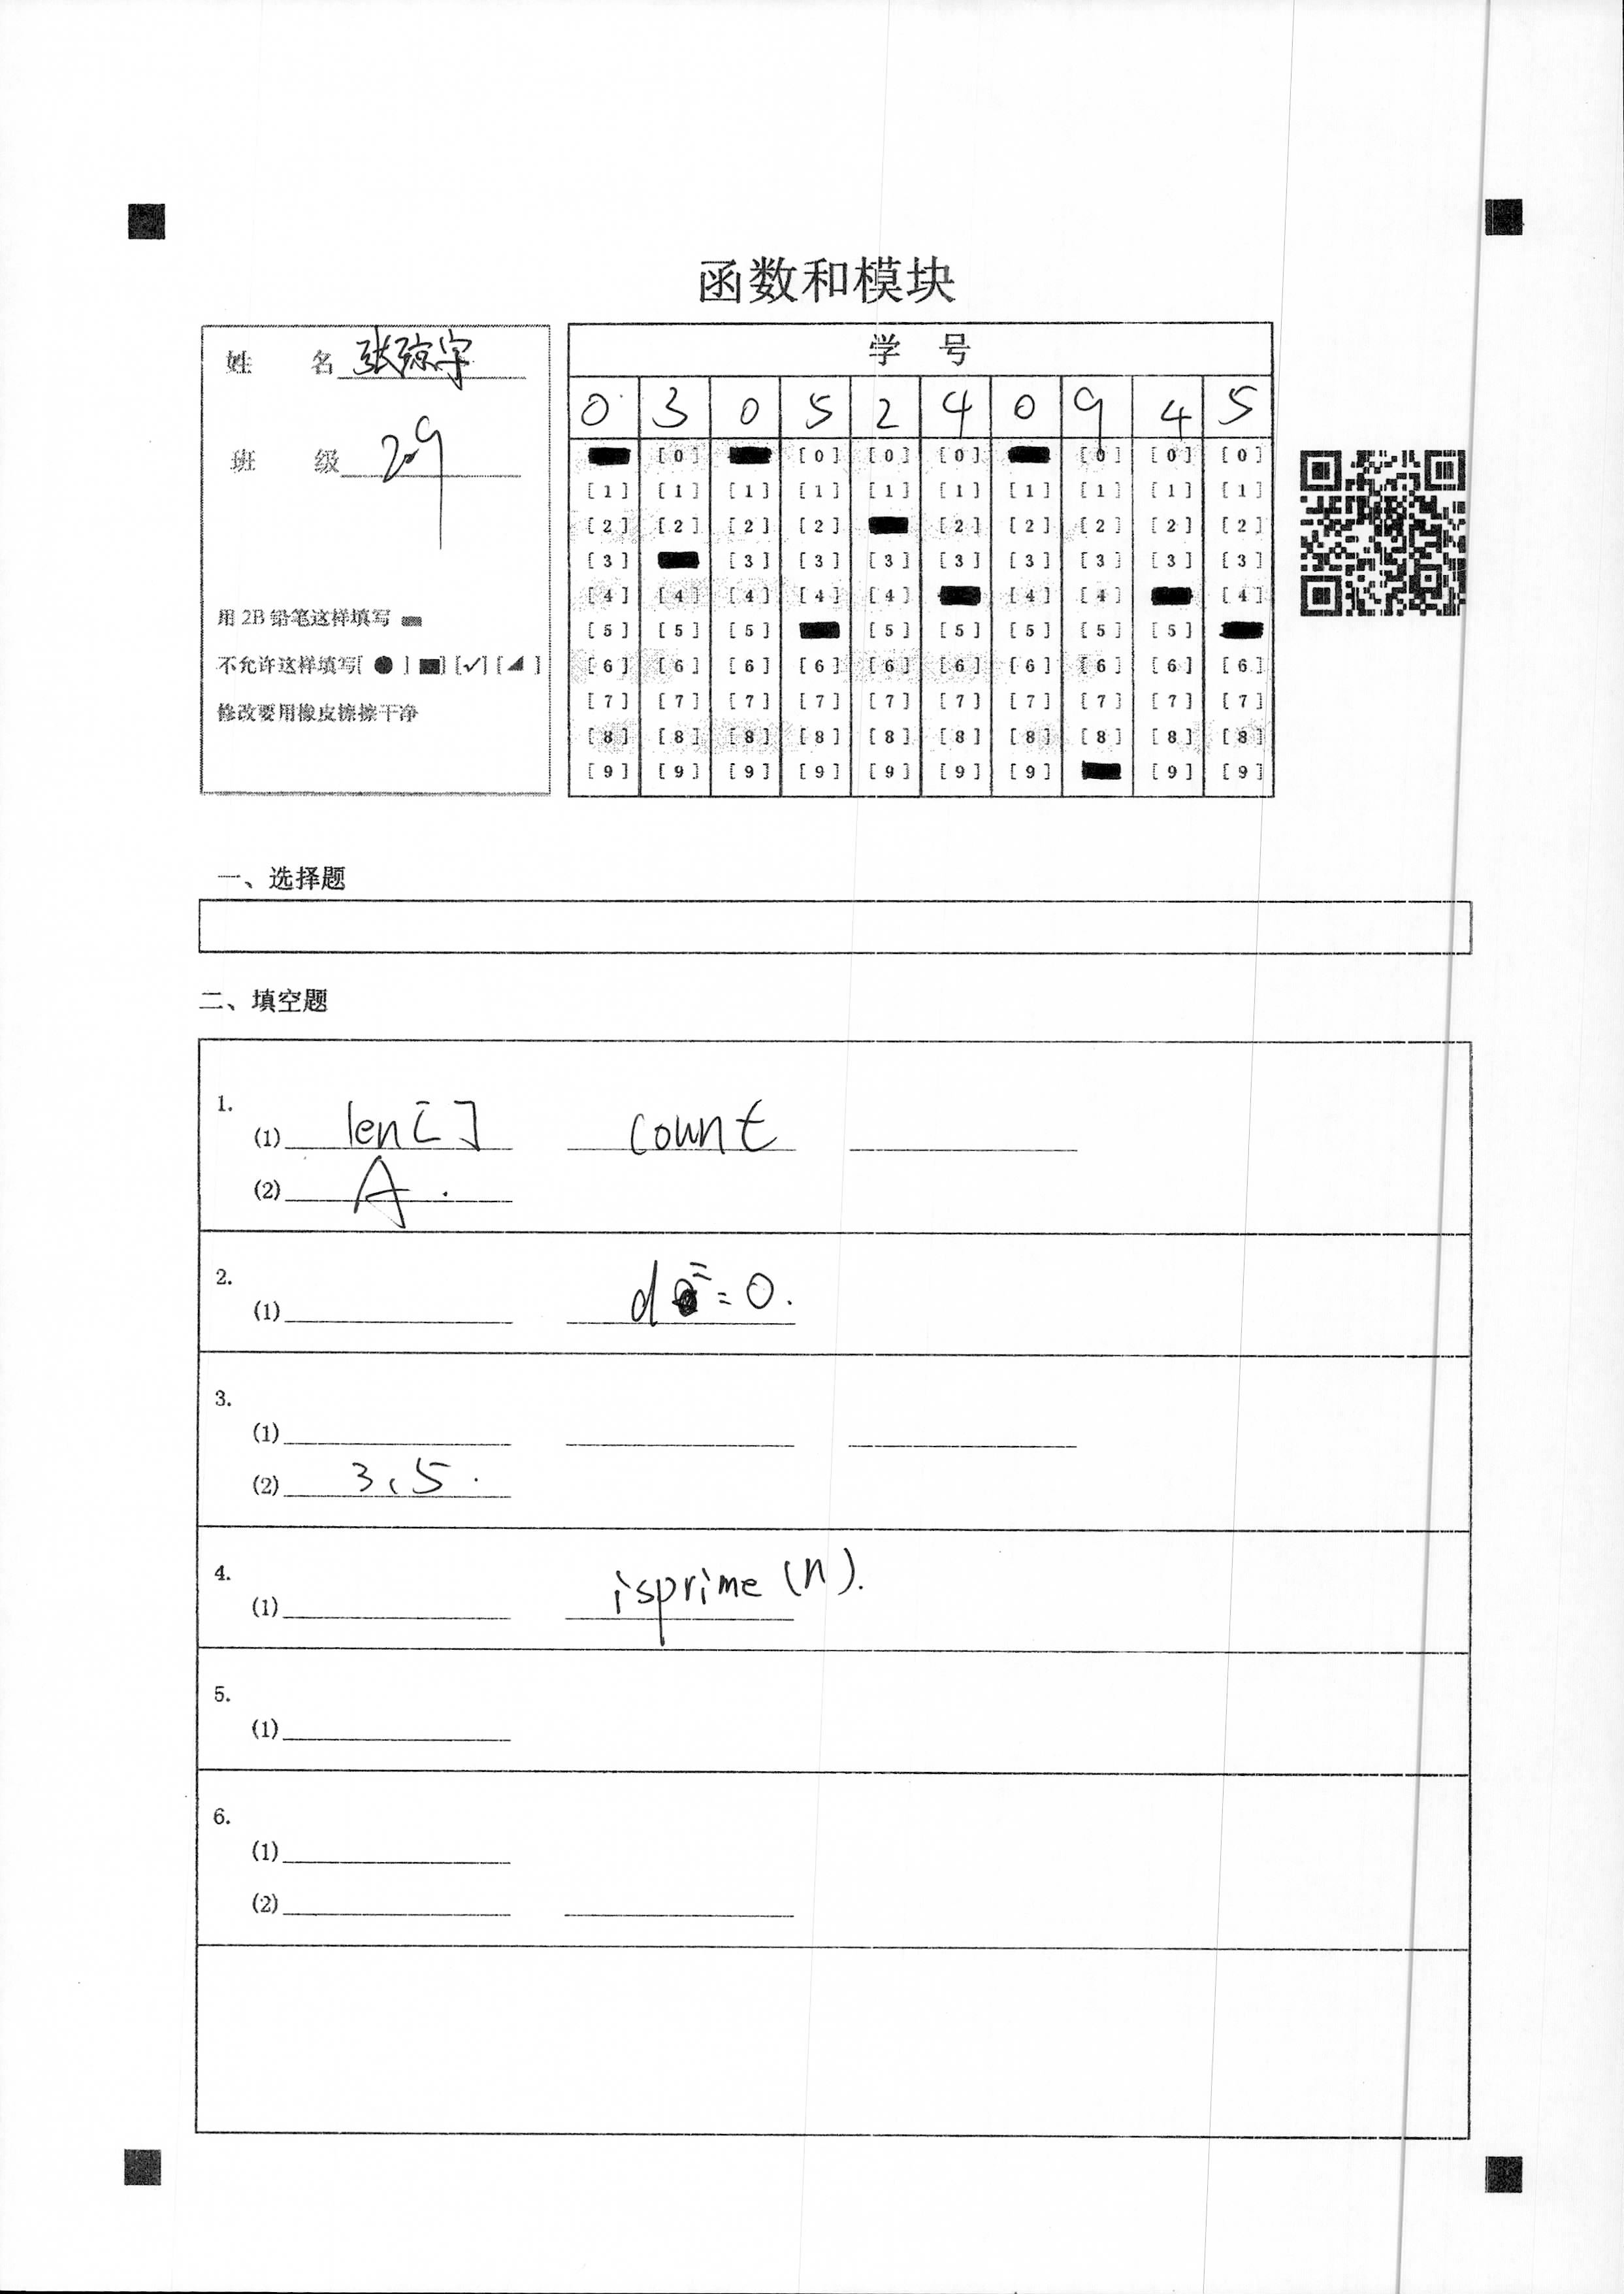 函数和模块
姓 名 张琼宇
班 级 29
用 2B 铅笔这样填写
不允许这样填写[ ● ] [■] [✓] [◢ ]
修改要用橡皮擦擦干净
学 号
0 3 0 5 2 4 0 9 4 5
[0] [0] [0] [0] [0] [0] [0]
[1] [1] [1] [1] [1] [1] [1] [1] [1] [1]
[2] [2] [2] [2] [2] [2] [2] [2] [2]
[3] [3] [3] [3] [3] [3] [3] [3] [3]
[4] [4] [4] [4] [4] [4] [4] [4]
[5] [5] [5] [5] [5] [5] [5] [5]
[6] [6] [6] [6] [6] [6] [6] [6] [6] [6]
[7] [7] [7] [7] [7] [7] [7] [7] [7] [7]
[8] [8] [8] [8] [8] [8] [8] [8] [8] [8]
[9] [9] [9] [9] [9] [9] [9] [9] [9]
一、选择题
二、填空题
1.
(1) len[] count
(2) A .
2.
(1) d == 0.
3.
(1)
(2) 3、5 .
4.
(1) isprime (n).
5.
(1)
6.
(1)
(2)